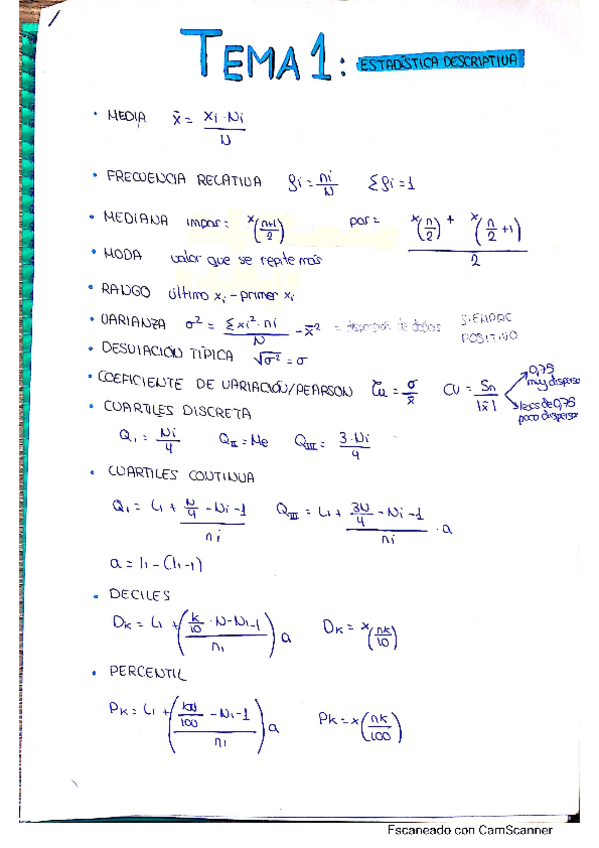 TEMA 1: ESTADÍSTICA DESCRIPTIVA
• MEDIA x̄ = xi·Ni / N
• FRECUENCIA RELATIVA fi = ni / N Σfi = 1
• MEDIANA impar: x((n+1)/2) par = (x(n/2) + x(n/2 + 1)) / 2
• MODA valor que se repite más
• RANGO último xi - primer xi
• VARIANZA σ² = Σxi²·ni / N - x̄² = dispersión de datos SIEMPRE POSITIVO
• DESVIACIÓN TÍPICA √σ² = σ
• COEFICIENTE DE VARIACIÓN/PEARSON = σ / x̄ CV = Sn / |x̄| 0,75 muy disperso
less de 0,75 poco disperso
• CUARTILES DISCRETA
Q1 = Ni / 4 QII = Me QIII = 3·Ni / 4
• CUARTILES CONTINUA
Q1 = Li + (N/4 - Ni-1) / ni QIII = Li + (3N/4 - Ni-1) / ni · a
a = li - (li-1)
• DECILES
DK = Li + ((K/10 · N - Ni-1) / ni) a DK = x(nk/10)
• PERCENTIL
PK = Li + ((KN/100 - Ni-1) / ni) a PK = x(nk/100)
Escaneado con CamScanner